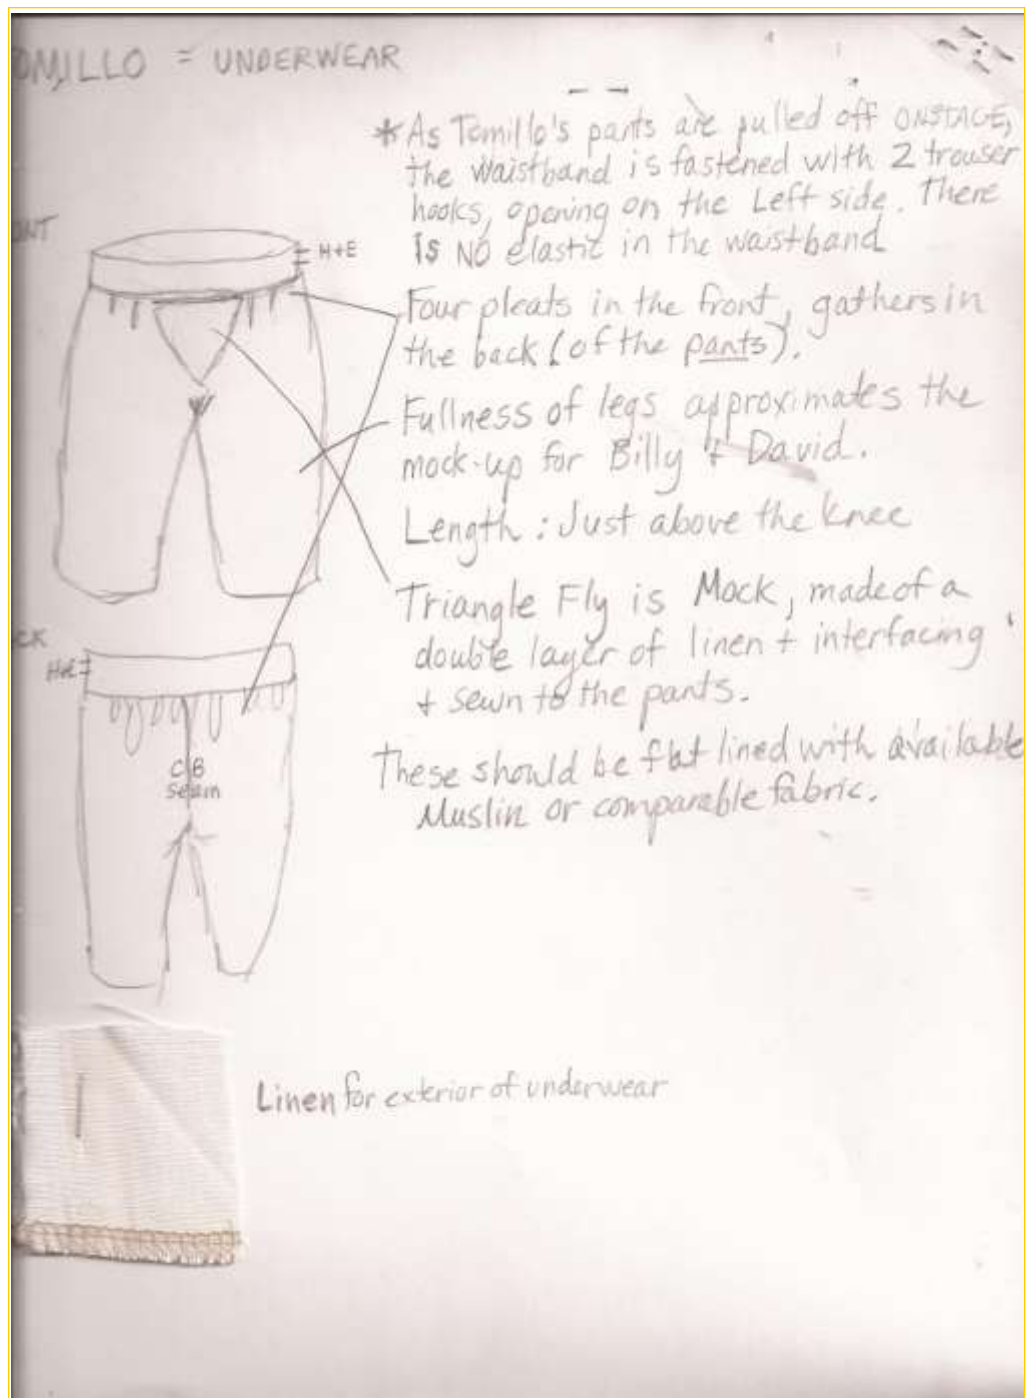 OMILLO = UNDERWEAR
*As Tomillo's pants are pulled off ONSTAGE,
the waistband is fastened with 2 trouser
hooks, opening on the Left side. There
is NO elastic in the waistband
ONT
H+E
Four pleats in the front, gathers in
the back (of the pants).
Fullness of legs approximates the
mock-up for Billy + David.
Length: Just above the knee
Triangle Fly is Mock, made of a
double layer of linen + interfacing
+ sewn to the pants.
CK
H+E
CB
Seam
These should be flat lined with available
Muslin or comparable fabric.
Linen for exterior of underwear